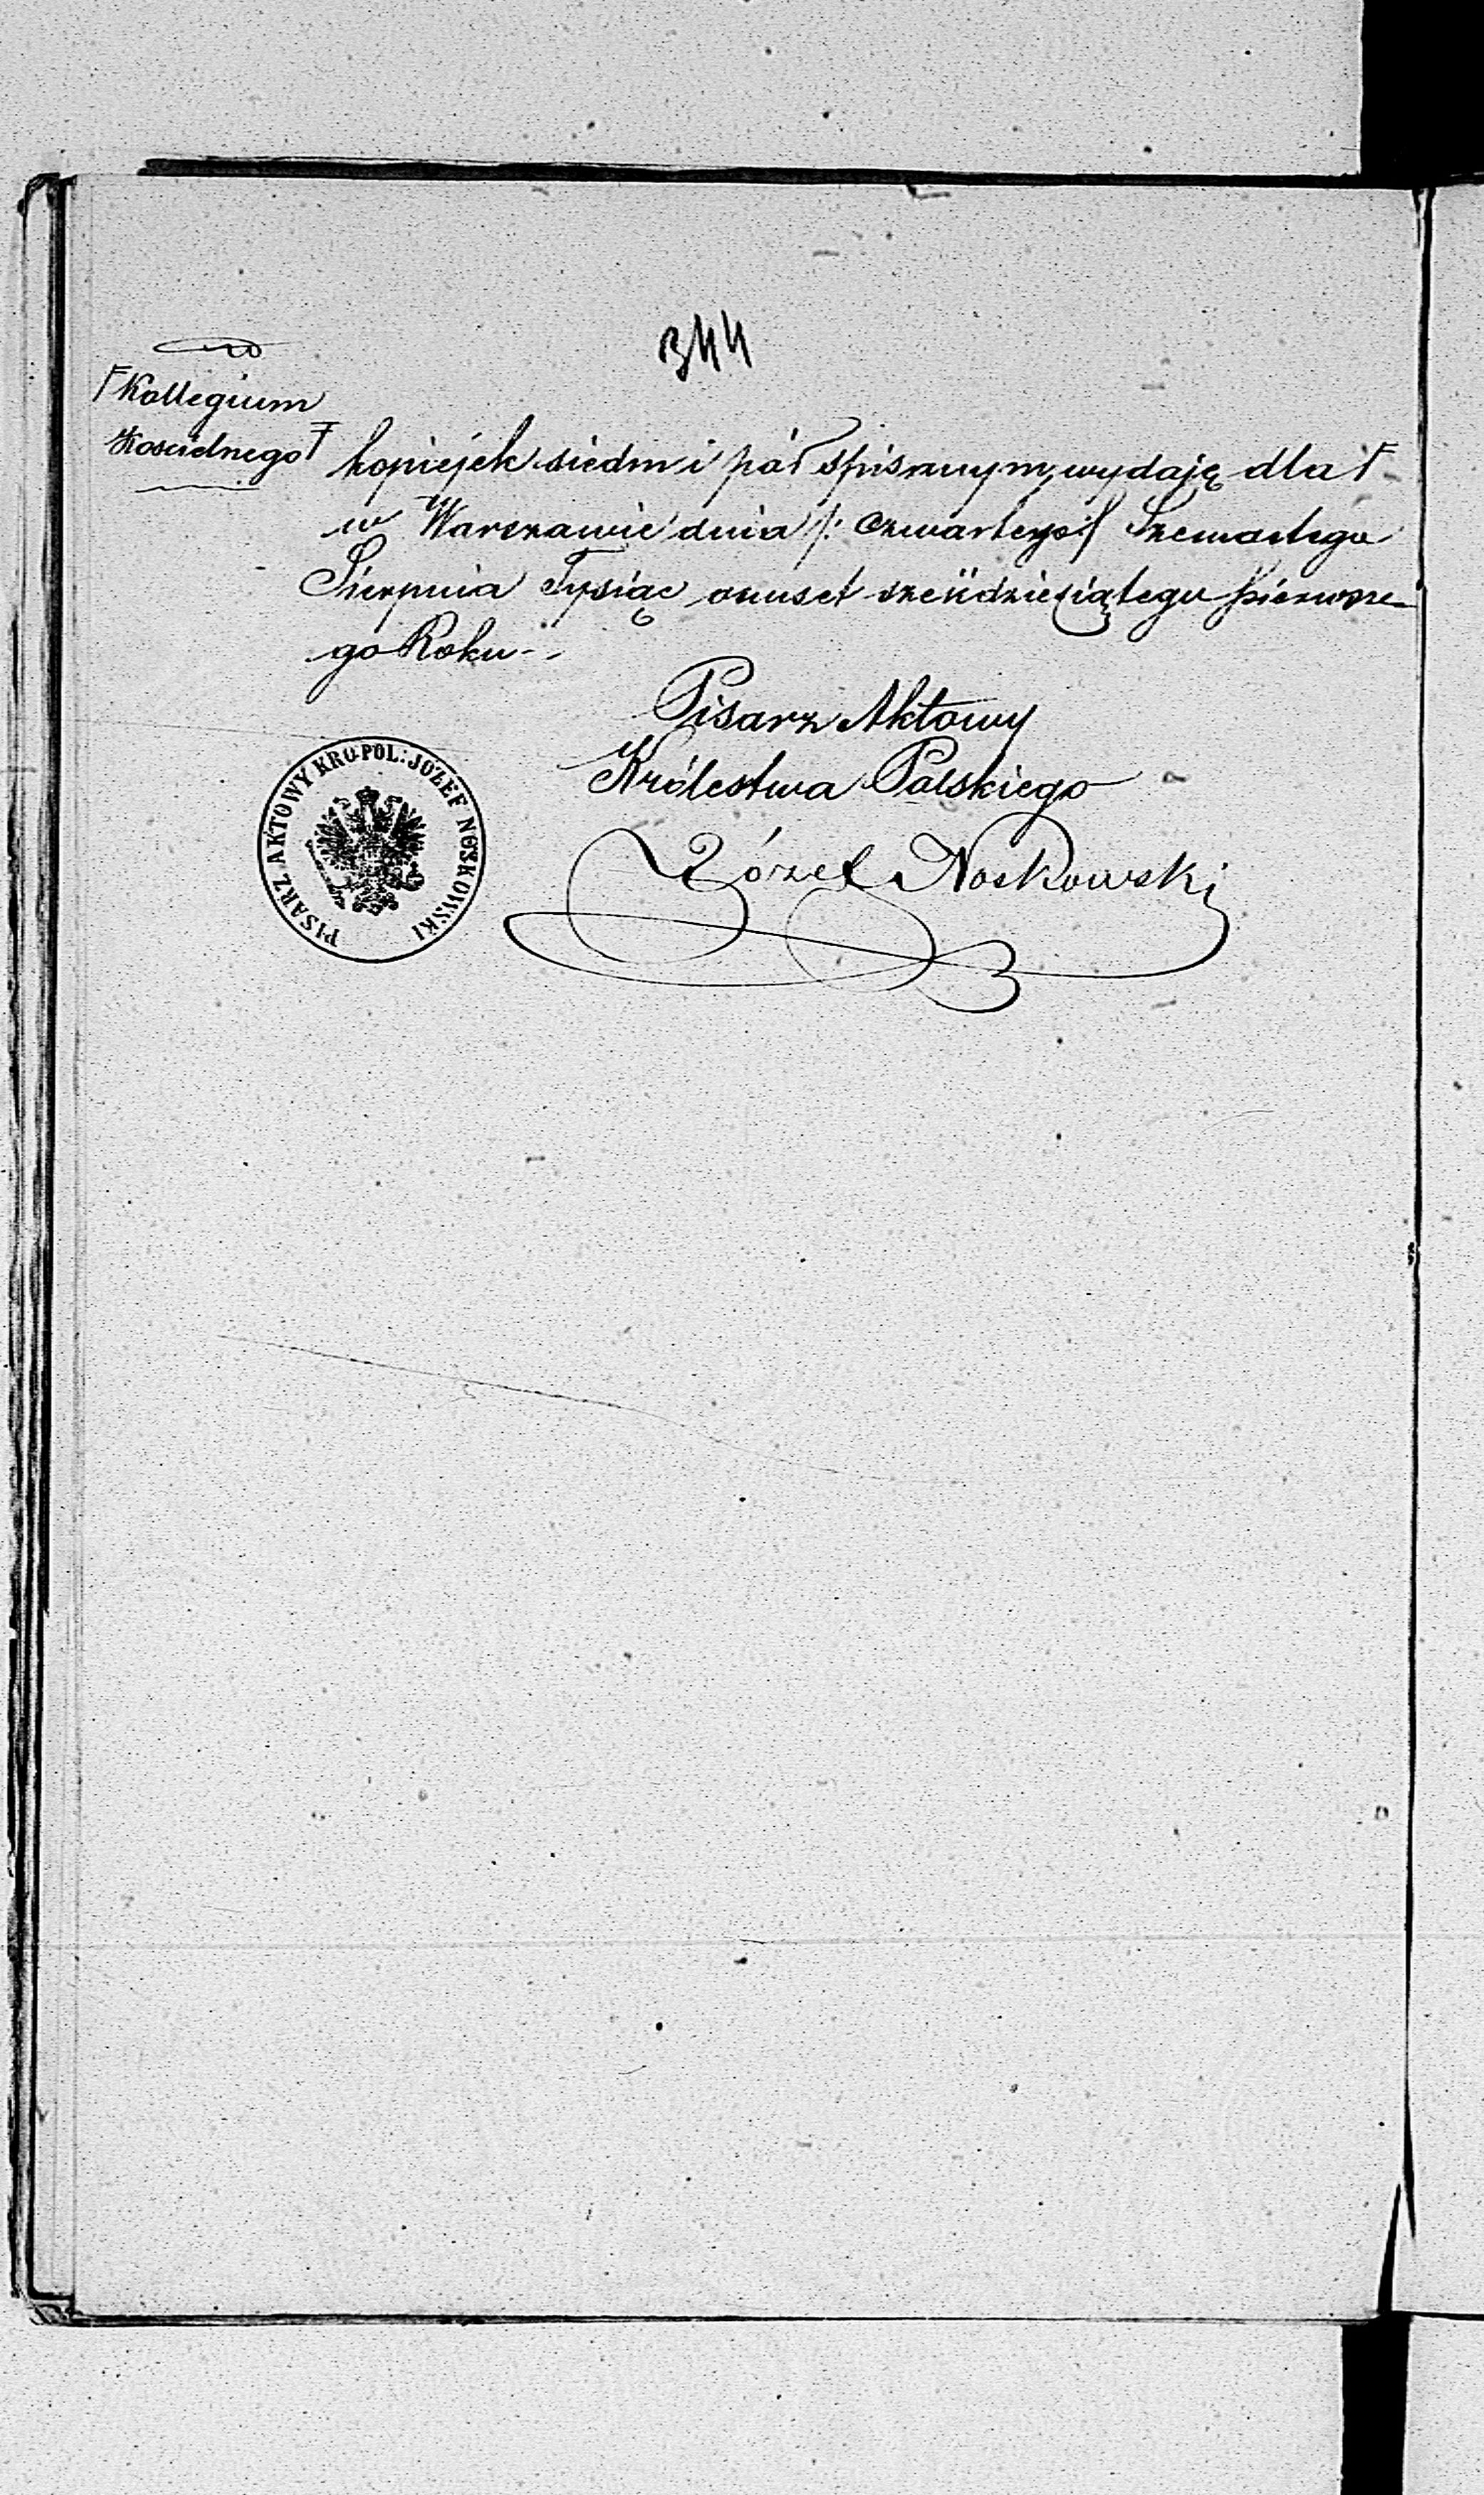 344
Ꞙ Kollegium
Kościelnego Ꞙ
kopiejek siedm i pół spisanym, wydaję dla Ꞙ
w Warszawie dnia /: czwartego :/ Szesnastego
Sierpnia Tysiąc ośmset sześćdziesiątego pierwsze-
go Roku -
Pisarz Aktowy
Królestwa Polskiego
Józef Noskowski
PISARZ AKTOWY KRO. POL: JOZEF NOSKOWSKI